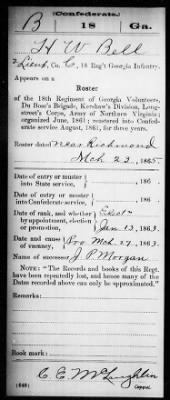 (Confederate.)
B 18 Ga.
H W Bell
Lieut, Co. C, 18 Reg't Georgia Infantry.
Appears on a
Roster
of the 18th Regiment of Georgia Volunteers,
Du Bose's Brigade, Kershaw's Division, Long-
street's Corps, Army of Northern Virginia;
organized June, 1861; mustered into Confed-
erate service August, 1861, for three years.
Roster dated near Richmond
Mch 23, 1865.
Date of entry or muster
into State service, , 186 .
Date of entry or muster
into Confederate service, , 186 .
Date of rank, and whether
by appointment, election
or promotion, Elect
Jan 13, 1863.
Date and cause
of vacancy, Pro Mch 27, 1863.
Name of successor J. P. Morgan
NOTE: "The Records and books of this Regt.
have been repeatedly lost, and hence many of the
Dates recorded above can only be approximated."
Remarks:
Book mark:
C. E. McLaughlin
(648) Copyist.